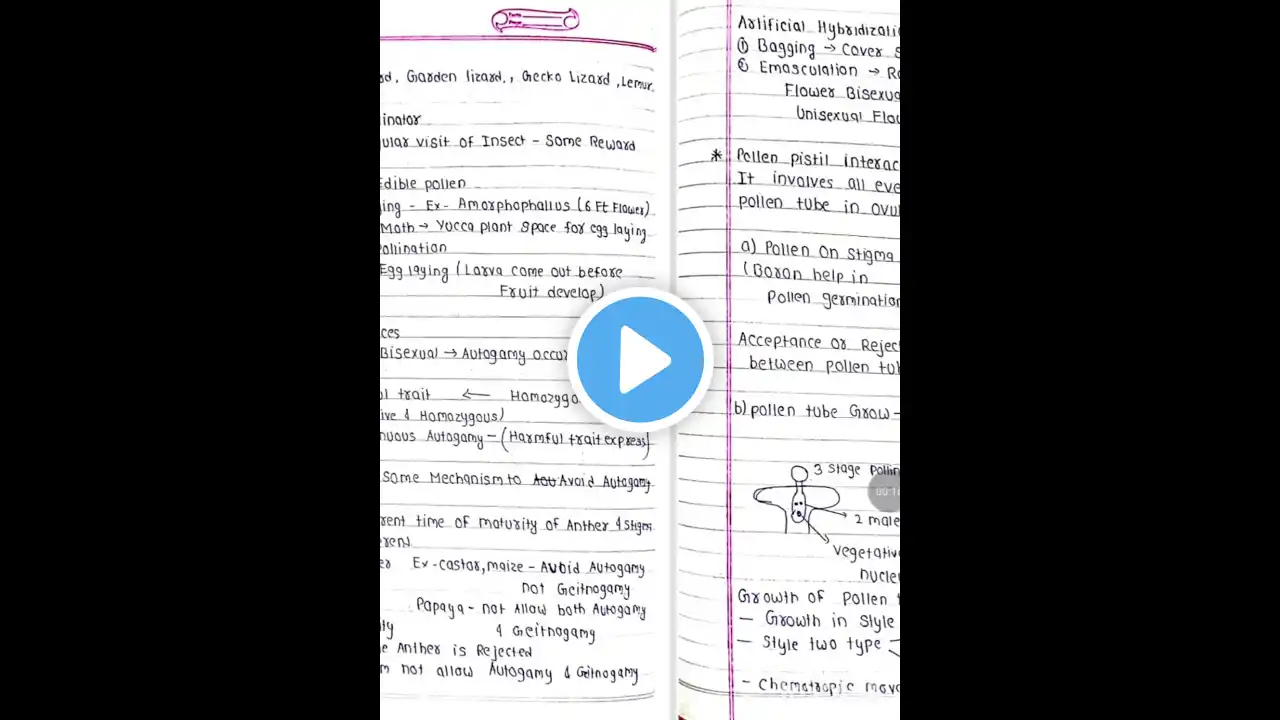 rd, Garden lizard, , Gecko Lizard , Lemur
inator
ular visit of Insect - Some Reward
Edible pollen
ing - Ex- Amorphophallus (6 Ft Flower)
Moth → Yucca plant Space for egg laying
ollination
Egg laying (Larva come out before
Fruit develop)
ces
Bisexual → Autogamy occu
ul trait ← Homozygo
ive & Homozygous)
nuous Autogamy - (Harmful trait express)
some Mechanism to Avoid Autogamy
rent time of maturity of Anther & Stigm
erent
er Ex-castor, maize - Avoid Autogamy
not Geitnogamy
Papaya - not Allow both Autogamy
ity & Geitnogamy
e Anther is Rejected
m not allow Autogamy & Geitnogamy
Artificial Hybridizati
① Bagging → Cover S
② Emasculation → R
Flower Bisexua
Unisexual Flo
* Pollen pistil interac
It involves all eve
pollen tube in ovu
a) Pollen On Stigma
(Boron help in
Pollen germination
Acceptance or Reject
between pollen tu
b) pollen tube Grow -
3 stage polli
00:1
2 male
Vegetativ
nucle
Growth of Pollen t
- Growth in Style
- Style two type
- Chemotropic mov